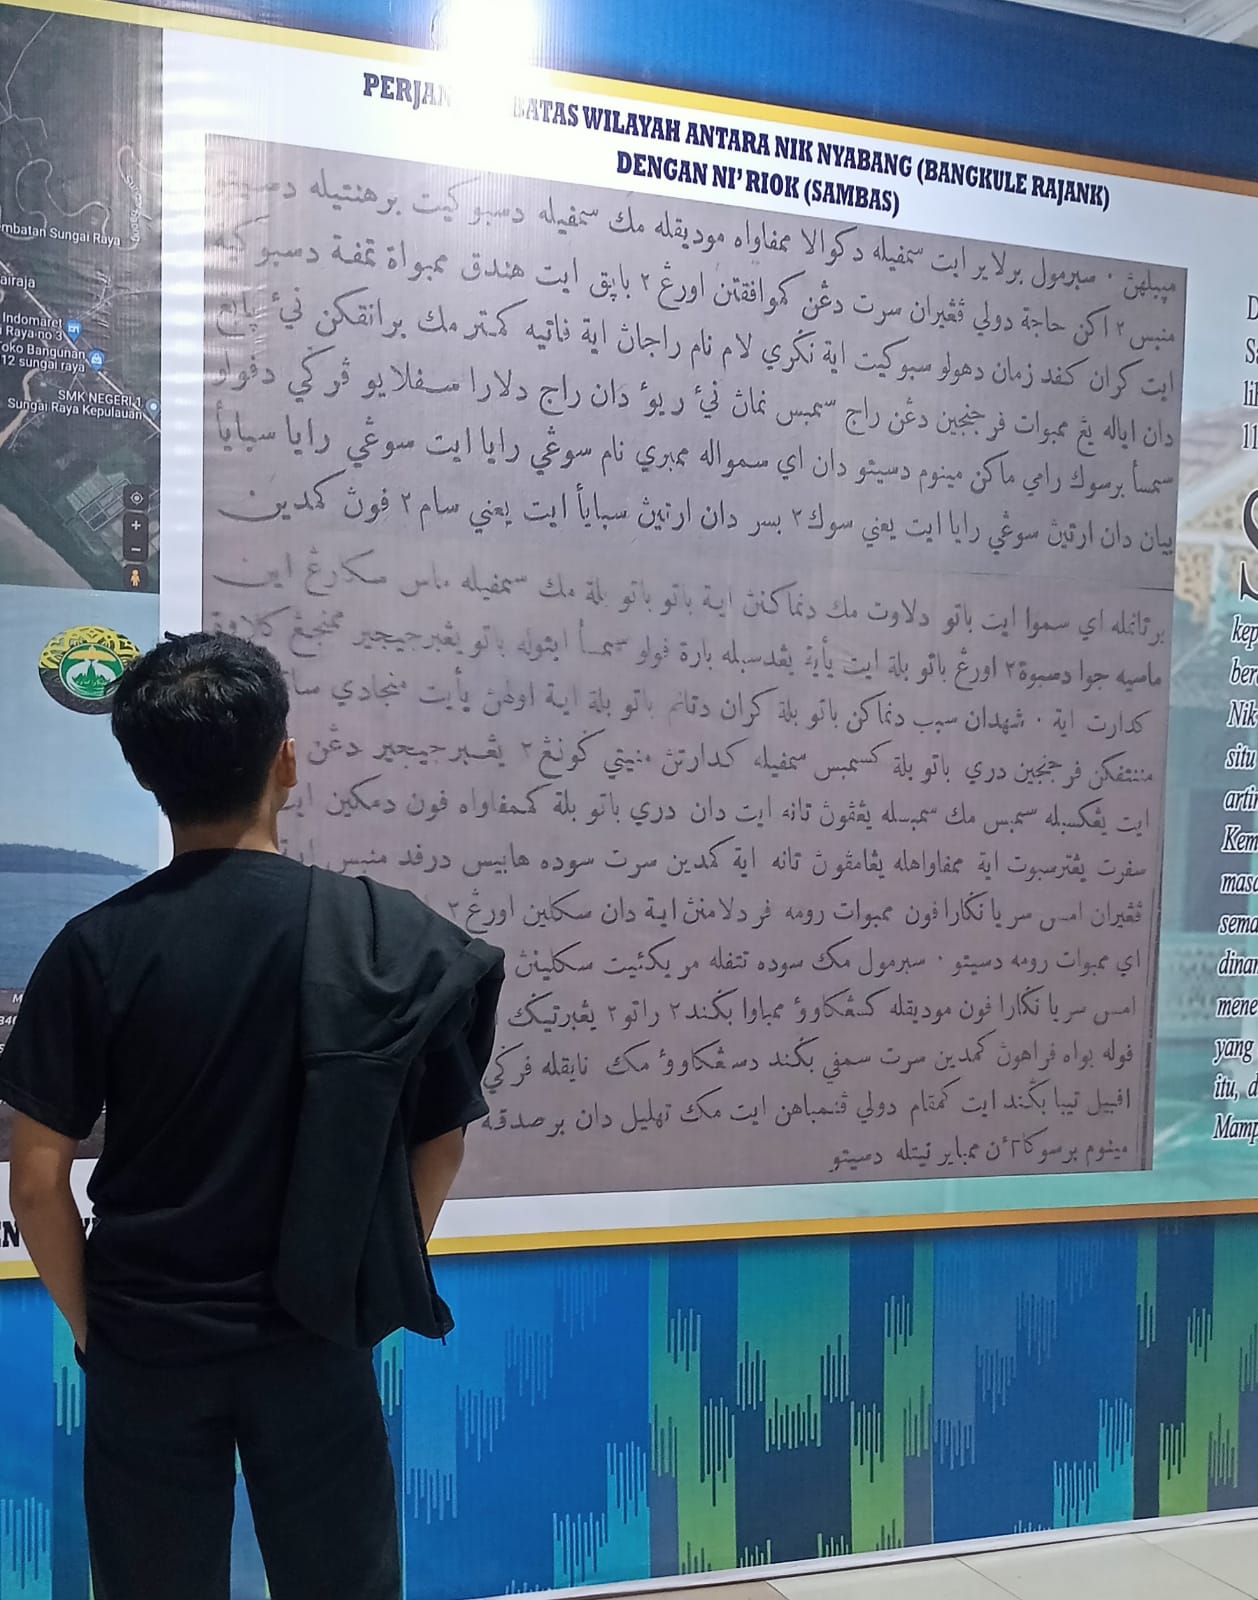 PERJAN BATAS WILAYAH ANTARA NIK NYABANG (BANGKULE RAJANK)
DENGAN NI' RIOK (SAMBAS)
mbatan Sungai Raya
airaja
Indomaret
i Raya no 3
Toko Bangunan
12 sungai raya
SMK NEGERI 1
Sungai Raya Kepulauan
سبرمول برلاير ايت سمفيله دكوالا ممفاواه موديقله مك سمفيله دسبوكيت برهنتيله
منبس٢ اكن حاجة دولي ڤڠيران سرت دڠن كموافقتن اورڠ٢ باپق ايت هندق ممبواة تمفة دسبوكيه
ايت كران كفد زمان دهولو سبوكيت اية نكري لام نام راجاڽ اية فاتيه كمتر مك برانقكن نيء
دان اياله يڠ ممبوات فرجنجين دڠن راج سمبس نماڽ نيء ريوء دان راج دلارا سفلايو ڤركي دفولو
سمسأ برسوك رامي ماكن مينوم دسيتو دان اي سمواله ممبري نام سوڠي رايا ايت سوڠي رايا سبايأ
بيان دان ارتيڽ سوڠي رايا ايت يعني سوك٢ بسر دان ارتيڽ سبايأ ايت يعني سام٢ فوڽ كمدين
برتاڽله اي سموا ايت باتو دلاوت مك دنماكنڽ اية باتو باتو بلة مك سمفيله ماس سكارڠ اين
ماسيه جوا دسبوة٢ اورڠ باتو بلة ايت يأية يڠدسبله بارة فولو سمسأ ايتوله باتو يڠبرجيجير
كدارت اية ٠ شهدان سبب دنماكن باتو بلة كران دتانم باتو بلة اية اولهڽ يأيت منجادي
مننتفكن فرجنجين دري باتو بلة كسمبس سمفيله كدارتڽ منيتي ڬونڠ٢ يڠبرجيجير دڠن
ايت يڠكسبله سمبس مك سمبسله يڠڤوڽ تانه ايت دان دري باتو بلة كممفاواه فون دمكين
سفرت يڠترسبوت اية ممفاواهله يڠامڤوڽ تانه اية كمدين سرت سوده هابيس درفد منبس
ڤڠيران امس سريا نكارا فون ممبوات رومه فردلامنڽ اية دان سكلين اورڠ٢
اي ممبوات رومه دسيتو ٠ سبرمول مك سوده تتفله مريكئيت سكلينڽ
امس سريا نكارا فون موديقله كسڠكاووء ممباوا بكند٢ راتو٢ يڠبرتيڬ
فوله بواه فراهوڽ كمدين سرت سمفي بكند دسڠكاووء مك نايقله فركي
افبيل تيبا بكند ايت كمقام دولي ڤنمباهن ايت مك تهليل دان برصدقه
مينوم برسوكا٢ءن ممباير نيتله دسيتو
kep
ber
Nik
situ
artin
Kem
masa
sema
dinan
mene
yang
itu, d
Mamp